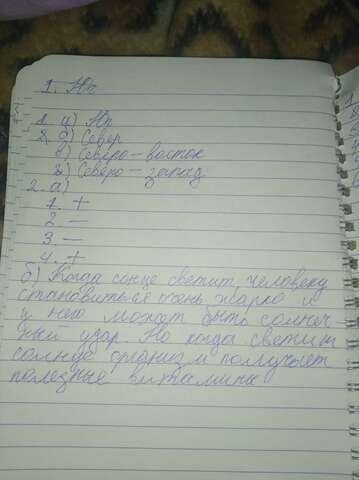 1. Юг
1. а) Юг
2. б) Север
в) Северо-восток
г) Северо-запад
2. а)
1. +
2. —
3. —
4. +
б) Когда сонце светит, человеку
становиться очень жарко и
у него может быть солнеч-
ный удар. Но когда светит
солнце организм получает
полезные витамины